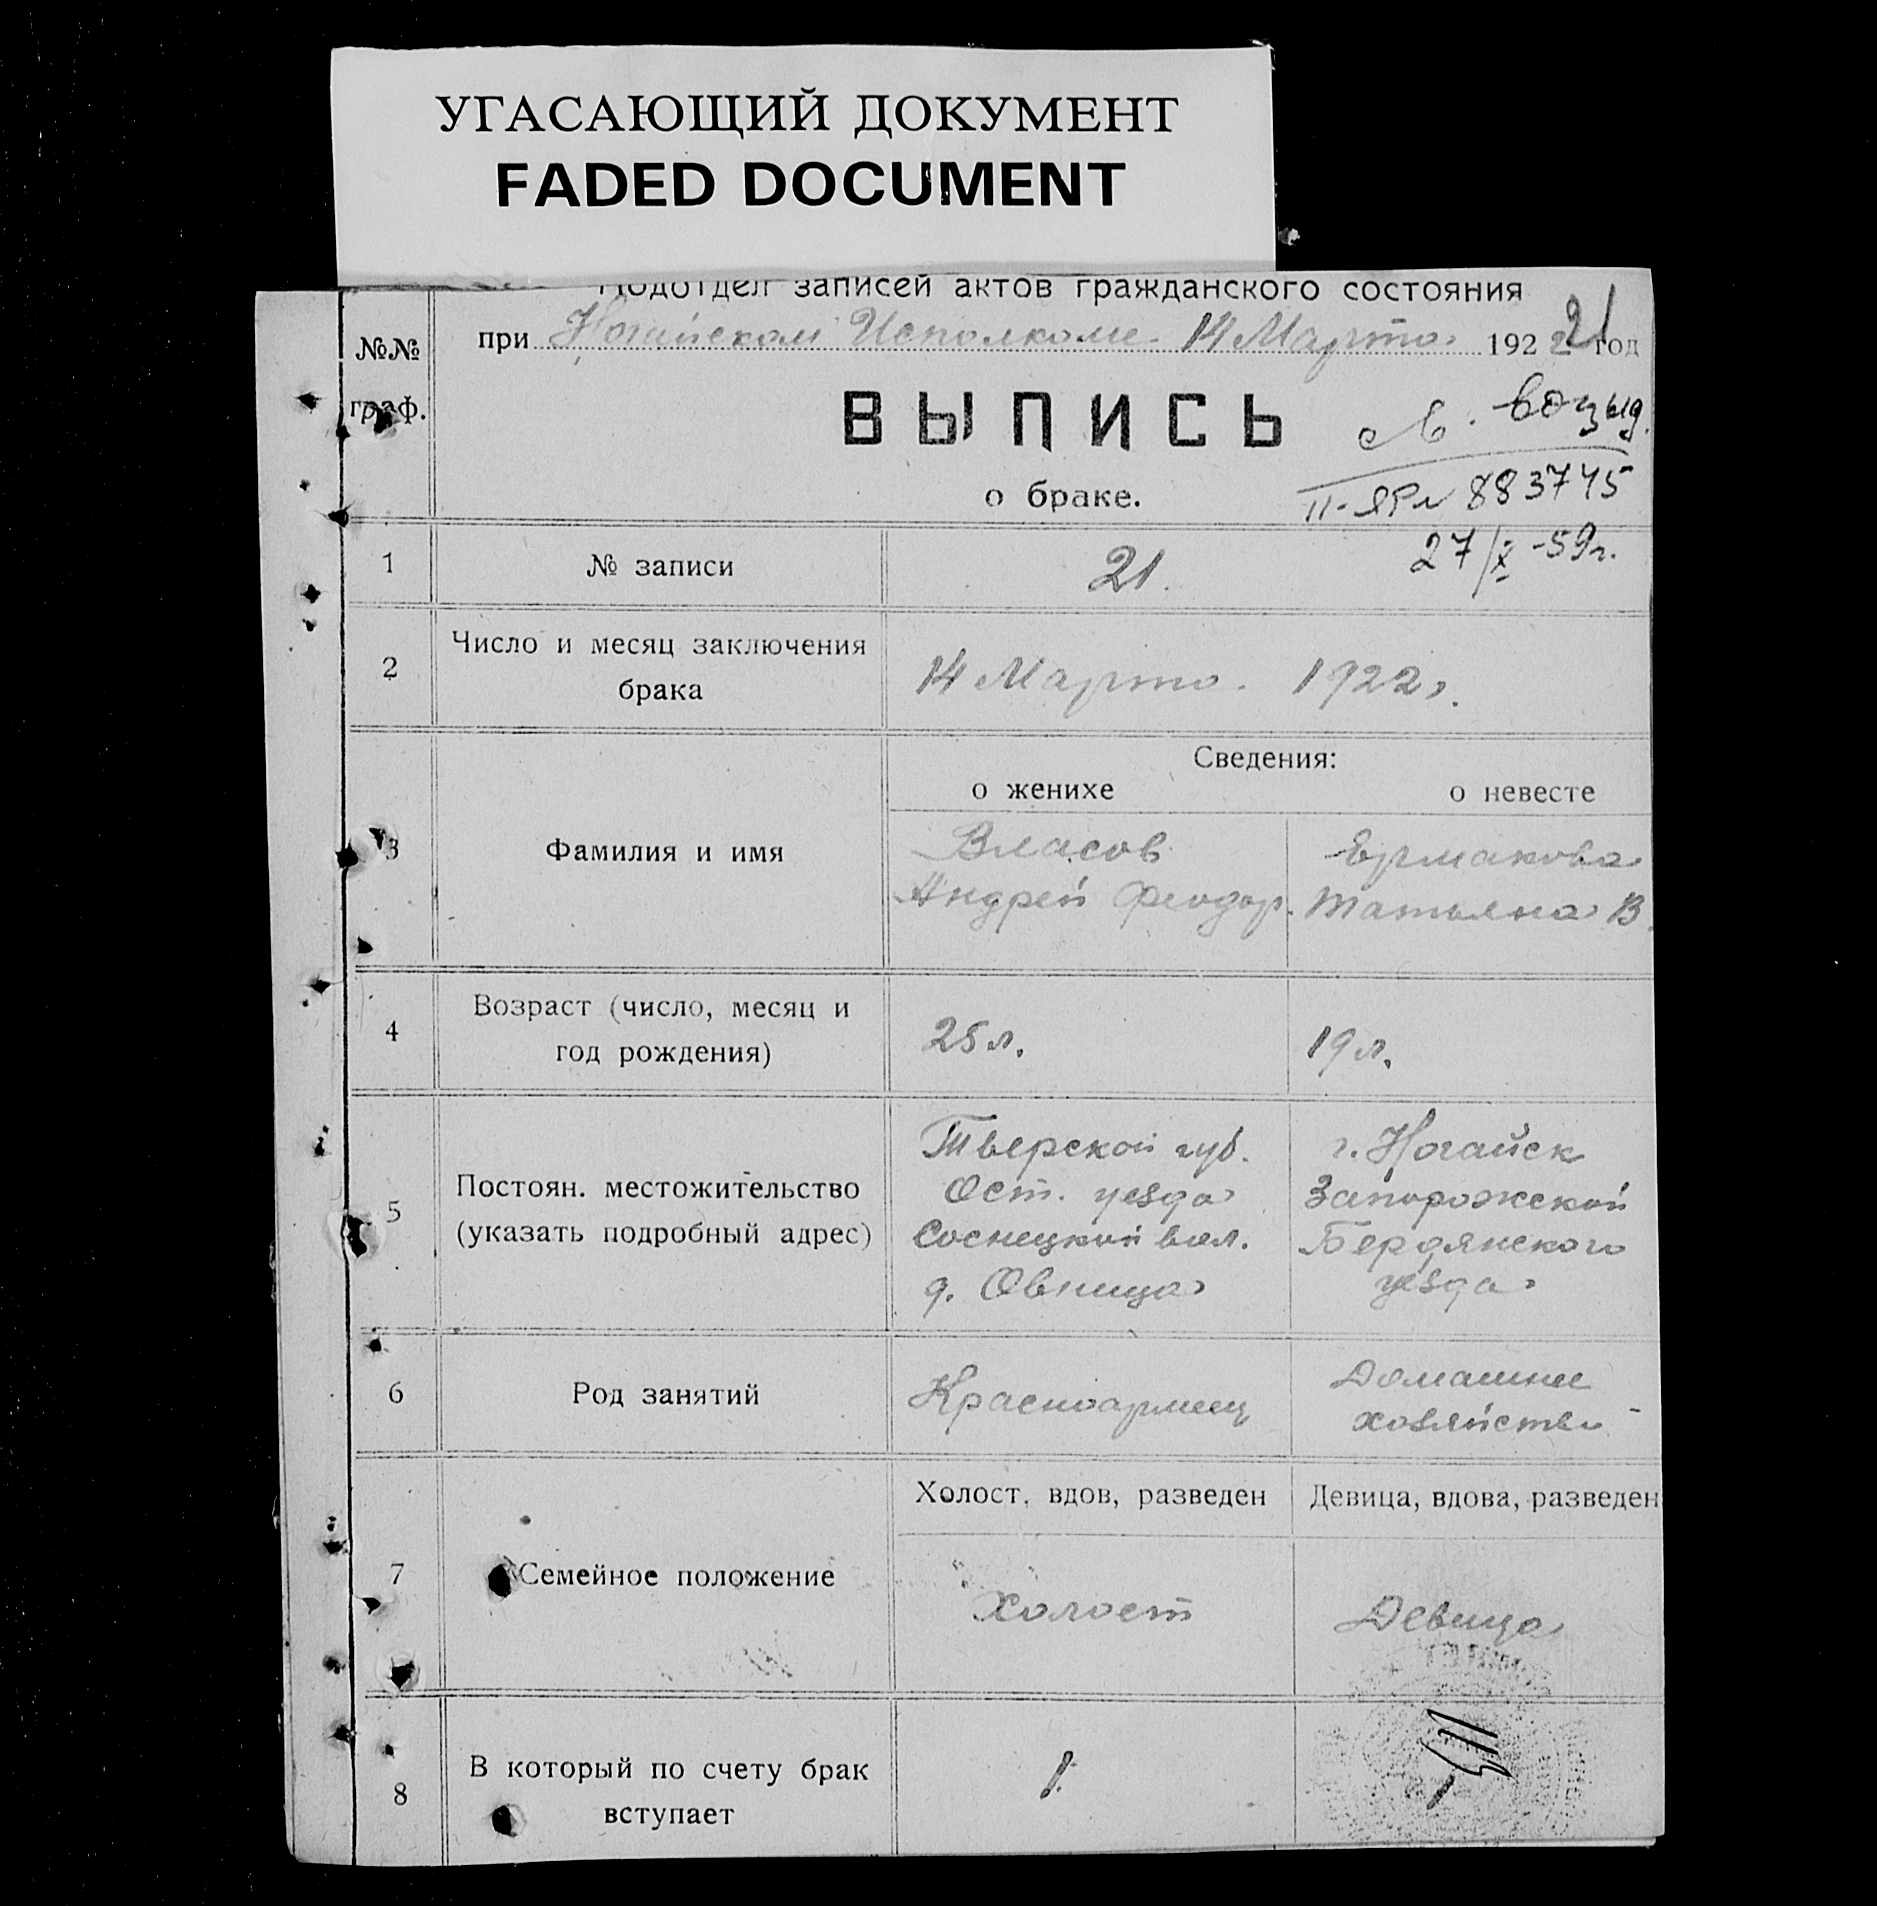 УГАСАЮЩИЙ ДОКУМЕНТ
FADED DOCUMENT
Подотдел записей актов гражданского состояния
при Ногайском Исполкоме 14 Марта 1922 год
21
№№
граф.
ВЫПИСЬ
о браке.
883745
27/X-59г.
1
№ записи
21.
2
Число и месяц заключения
брака
14 Марта. 1922г.
Сведения:
о женихе
о невесте
3
Фамилия и имя
Власов
Андрей Феодор.
Ермакова
Татьяна В.
4
Возраст (число, месяц и
год рождения)
25 л.
19 л.
5
Постоян. местожительство
(указать подробный адрес)
Тверской губ.
Ост. уезда
Соснецкой вол.
д. Овница
г. Ногайск
Запорожской
Бердянского
уезда
6
Род занятий
Красноармеец
Домашнее
хозяйство
7
Семейное положение
Холост, вдов, разведен
Девица, вдова, разведен
Холост
Девица
8
В который по счету брак
вступает
1.